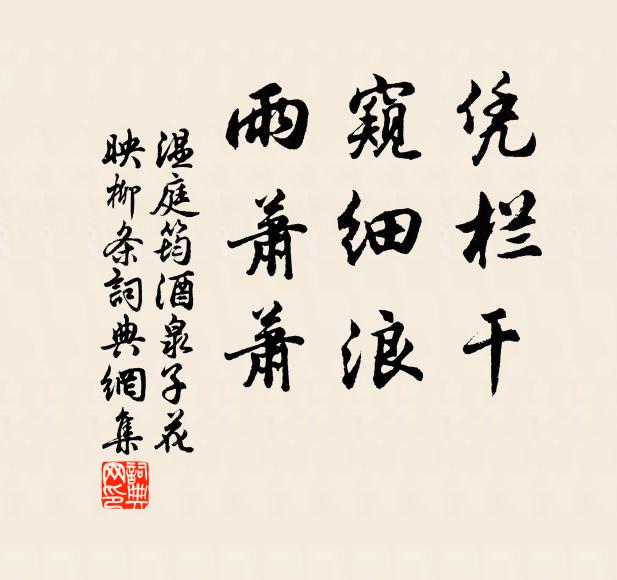 凭栏干
窥细浪
雨萧萧
温庭筠酒泉子花
映柳条词典網集
詞典网印